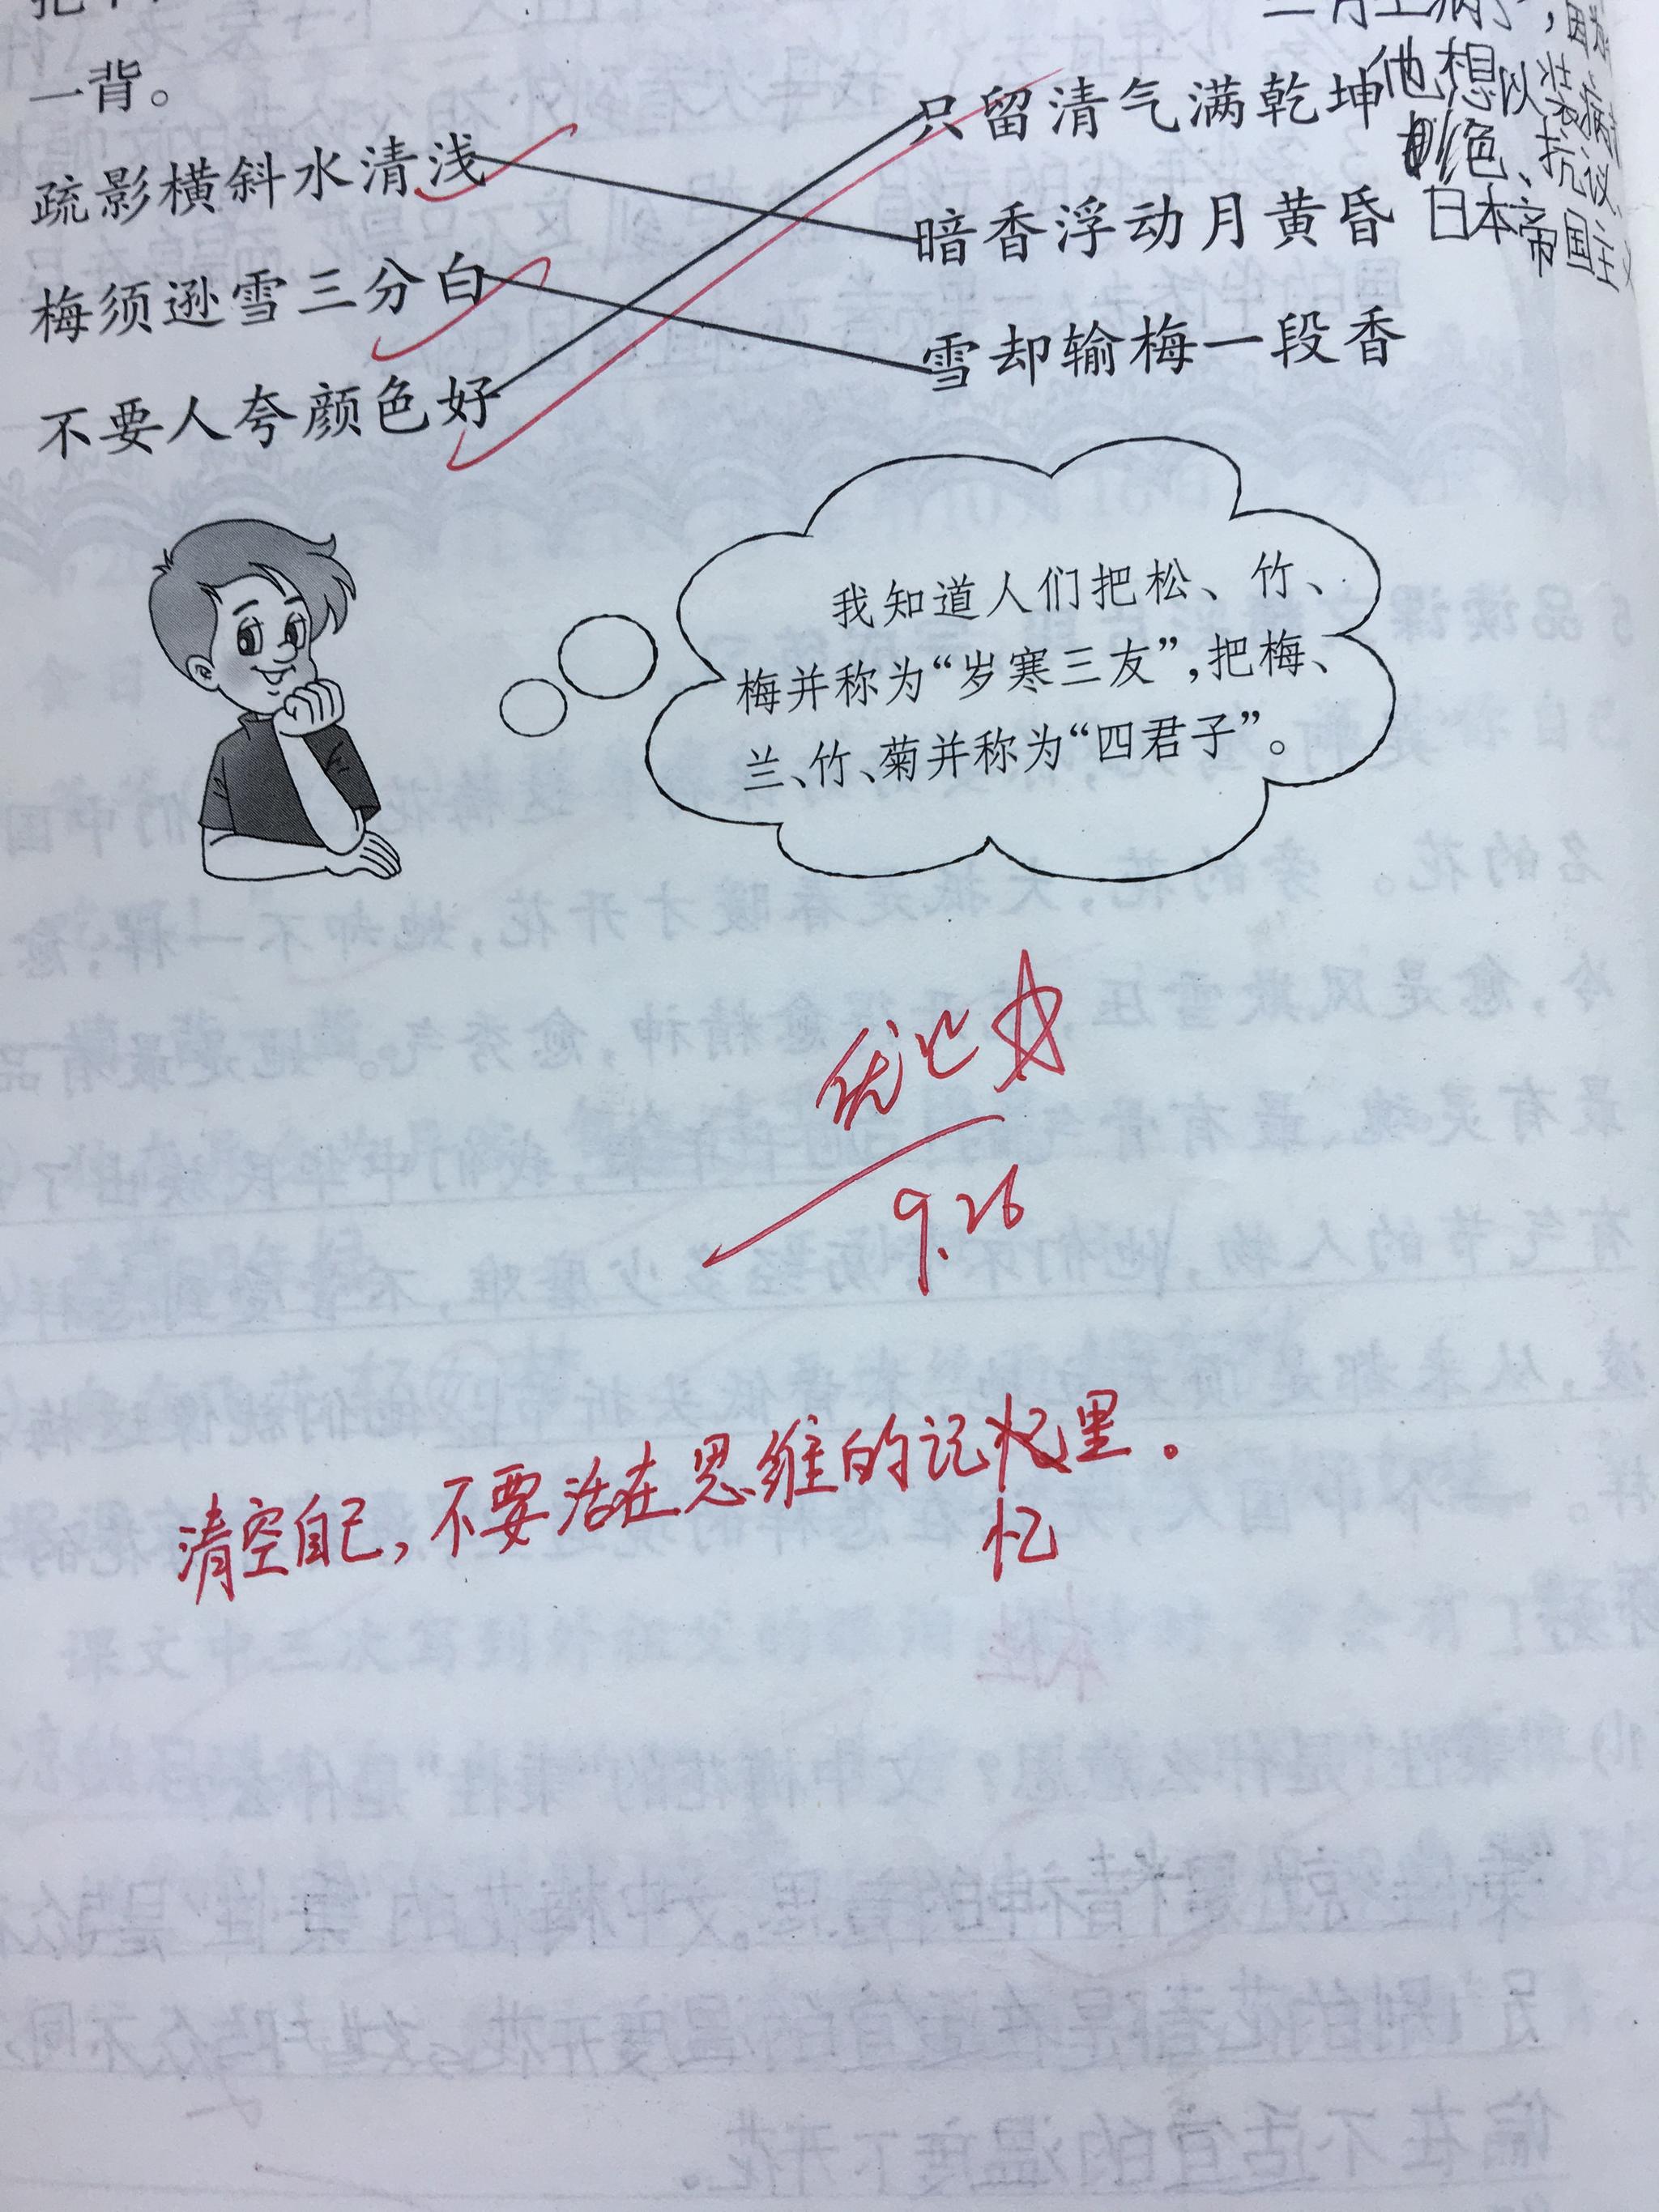 一背。
疏影横斜水清浅 只留清气满乾坤
梅须逊雪三分白 暗香浮动月黄昏
不要人夸颜色好 雪却输梅一段香
他想以装病
色、抗议
日本帝国主
我知道人们把松、竹、
梅并称为“岁寒三友”,把梅、
兰、竹、菊并称为“四君子”。
优
9.26
清空自己,不要活在思维的记忆里。
忆